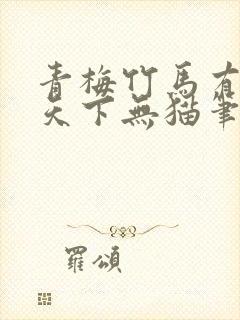 青梅竹馬有
天下無貓筆
羅頌